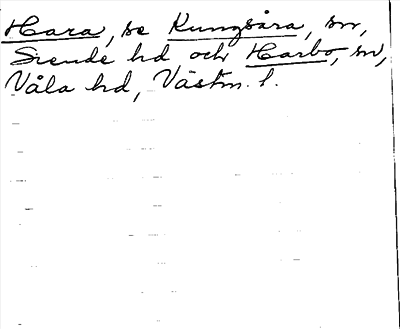 Hara, se Kungsåra, sn,
Siende hd och Harbo, sn,
Våla hd, Västm. l.